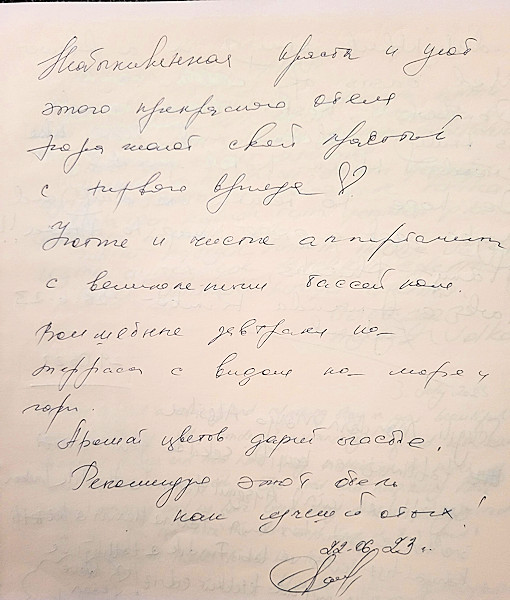 Необыкновенная красота и уют
этого прекрасного отеля
поражает своей красотой
с первого взгляда ♡
Уютные и чистые аппартаменты
с великолепным бассейном.
Волшебные завтраки на
террасе с видом на море и
горы.
Аромат цветов дарит счастье.
Рекомендую этот отель
как лучший отдых!
22.06.23 г.